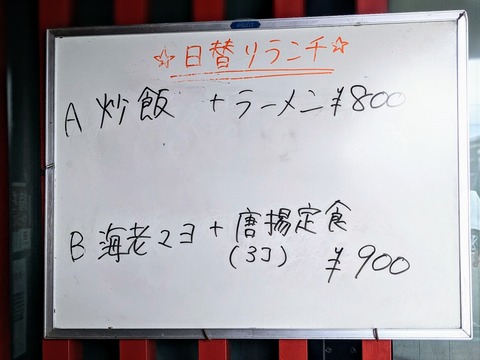 ☆日替りランチ☆
A 炒飯 + ラーメン ¥800
B 海老マヨ + 唐揚定食
(3コ) ¥900